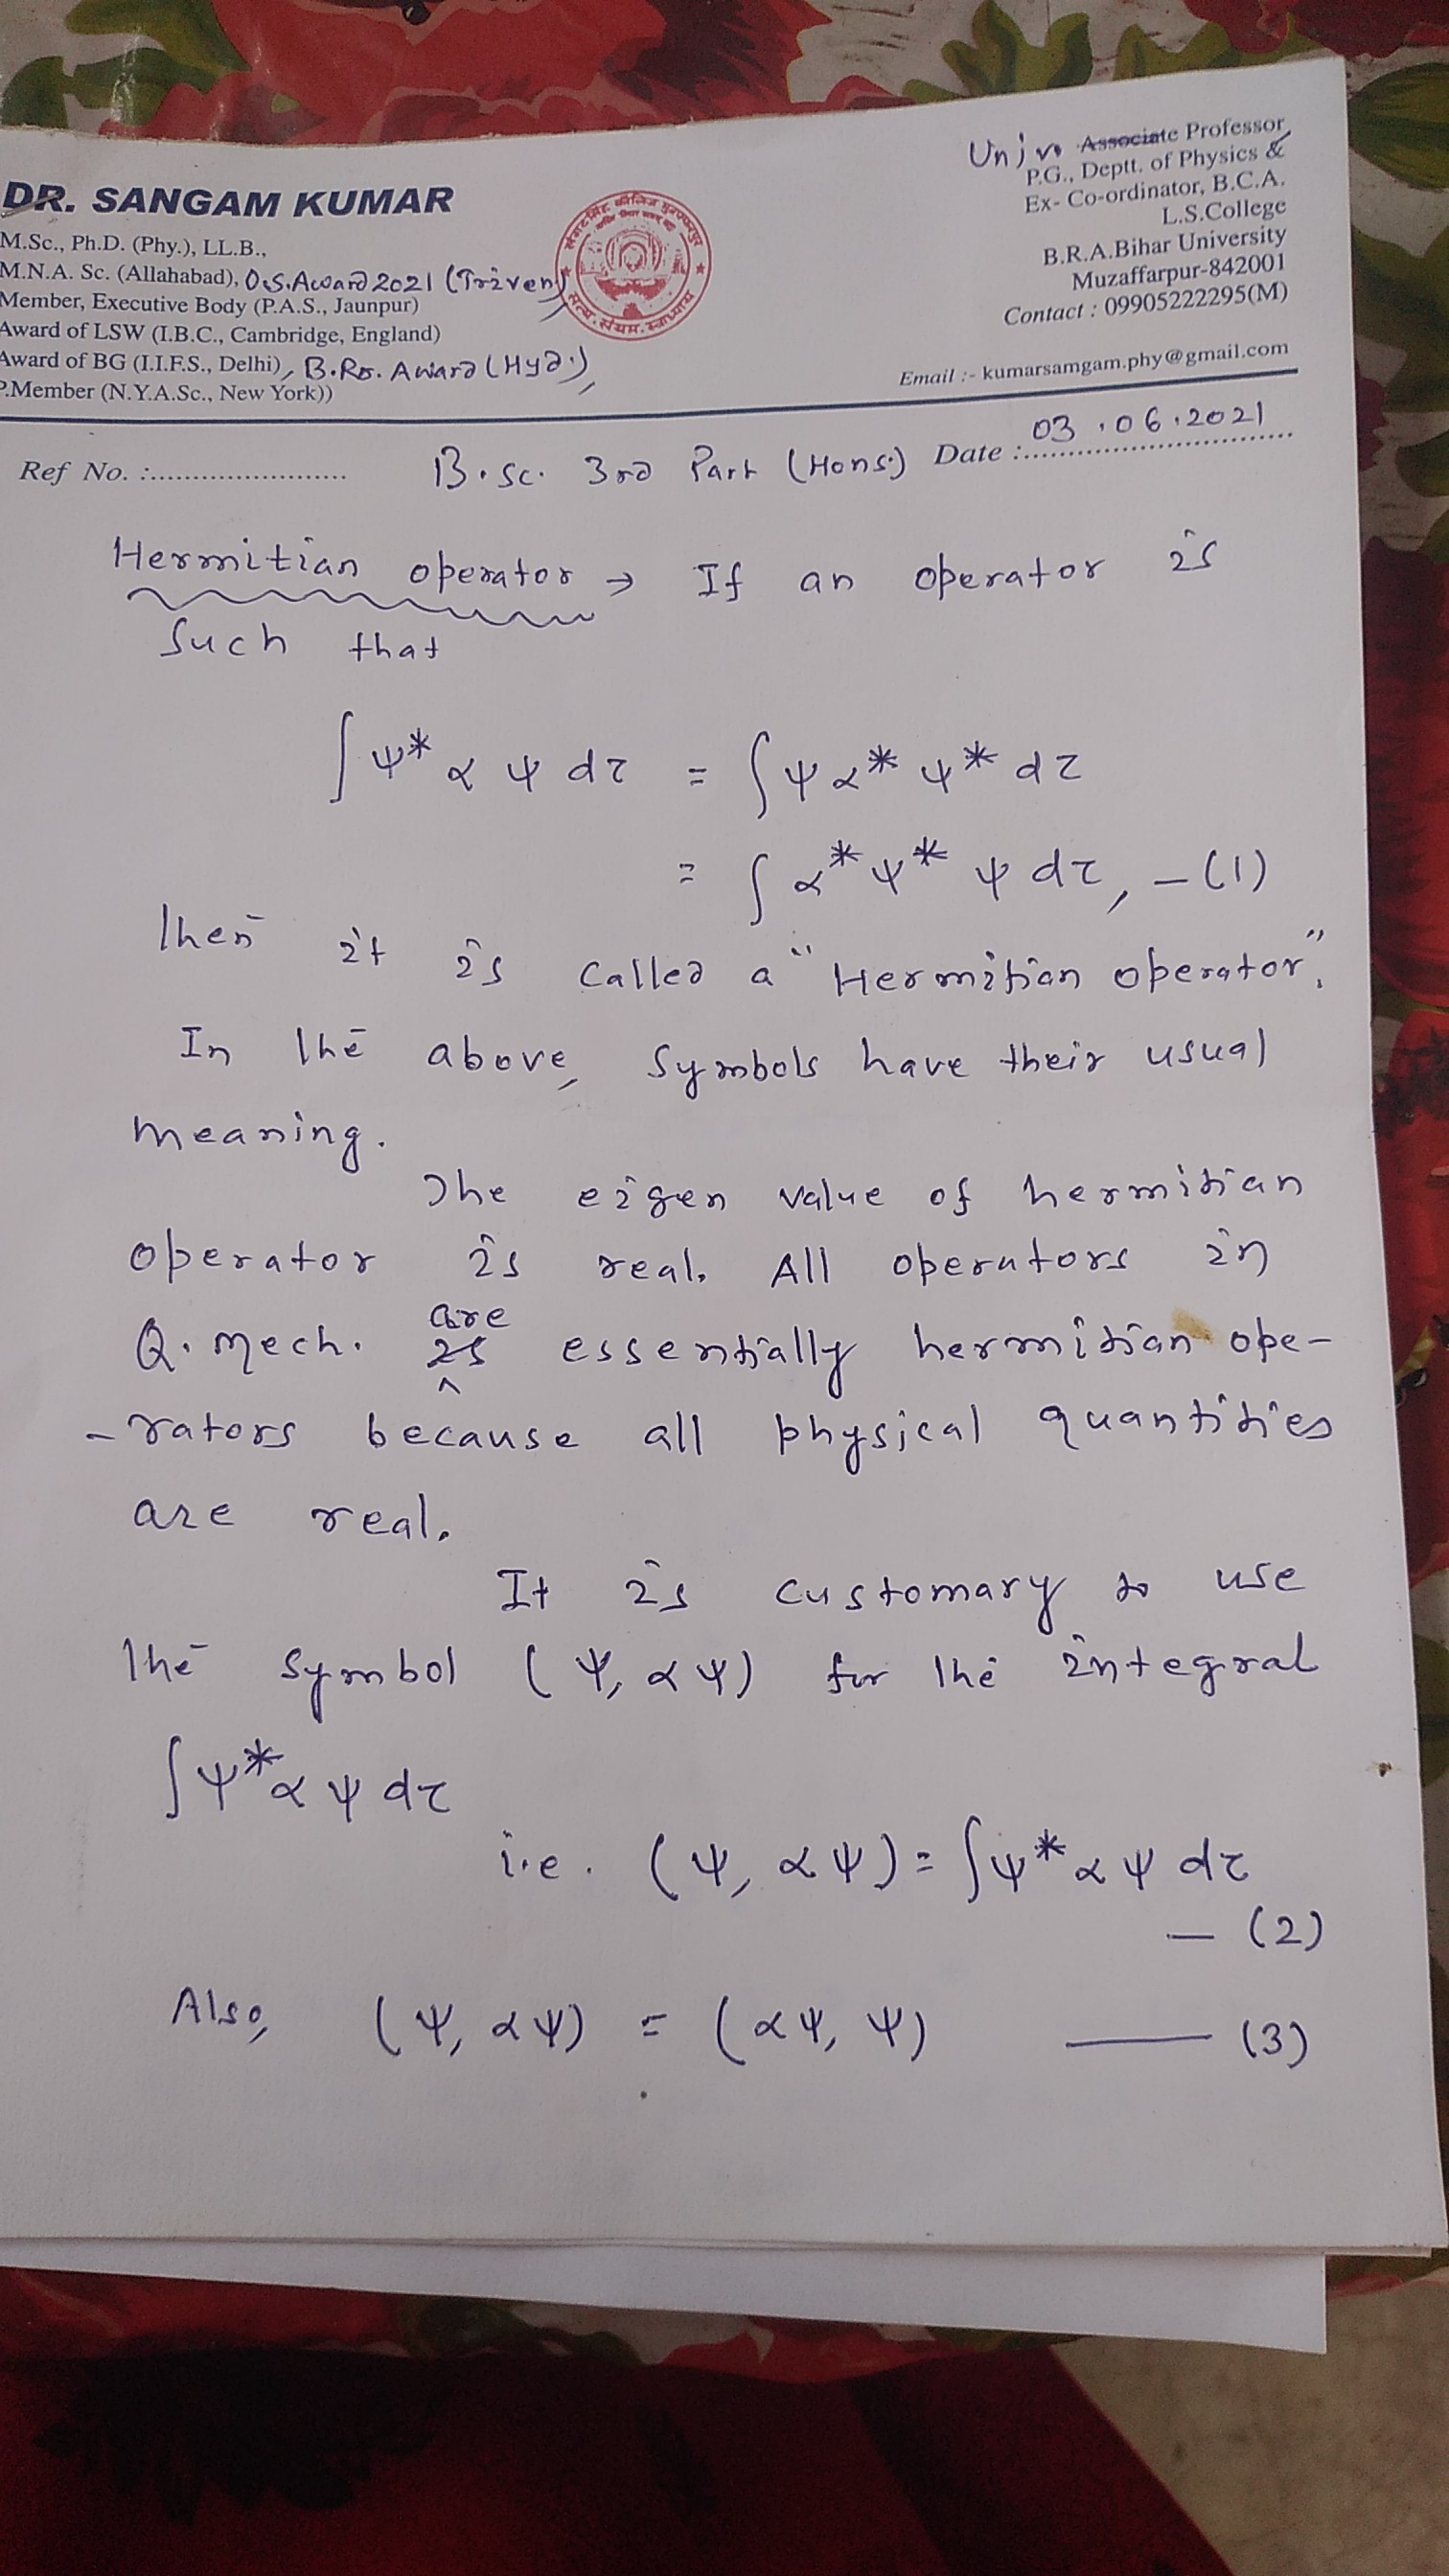 DR. SANGAM KUMAR
M.Sc., Ph.D. (Phy.), LL.B.,
M.N.A. Sc. (Allahabad), O.S. Award 2021 (Triveni)
Member, Executive Body (P.A.S., Jaunpur)
Award of LSW (I.B.C., Cambridge, England)
Award of BG (I.I.F.S., Delhi), B.Rs. Award (Hyd.),
P.Member (N.Y.A.Sc., New York))
Univ. Associate Professor
P.G., Deptt. of Physics &
Ex- Co-ordinator, B.C.A.
L.S.College
B.R.A.Bihar University
Muzaffarpur-842001
Contact : 09905222295(M)
Email :- kumarsamgam.phy@gmail.com
Ref No. :........................ B.Sc. 3rd Part (Hons.) Date : 03.06.2021
Hermitian operator → If an operator is
such that
∫ψ* α ψ dτ = ∫ψ α* ψ* dτ
= ∫α* ψ* ψ dτ, – (1)
then it is called a "Hermitian operator".
In the above, symbols have their usual
meaning.
The eigen value of hermitian
operator is real. All operators in
Q. Mech. are essentially hermitian ope-
-rators because all physical quantities
are real.
It is customary to use
the symbol (ψ, αψ) for the integral
∫ψ* α ψ dτ
i.e. (ψ, αψ) = ∫ψ* α ψ dτ
— (2)
Also, (ψ, αψ) = (αψ, ψ) — (3)